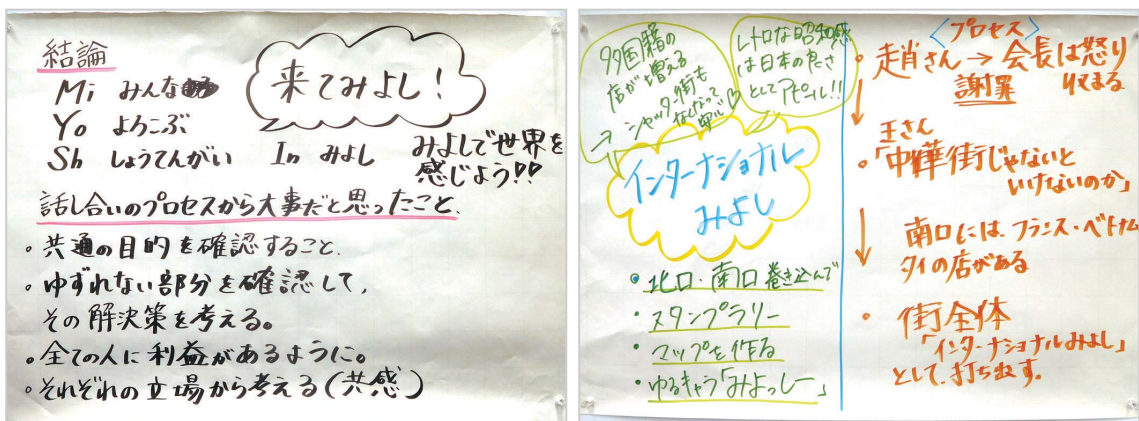 結論
Mi みんな
Yo よろこぶ
Sh しょうてんがい
In みよし
来てみよし！
みよしで世界を
感じよう!!
話し合いのプロセスから大事だと思ったこと、
・共通の目的を確認すること、
・ゆずれない部分を確認して、
その解決策を考える。
・全ての人に利益があるように。
・それぞれの立場から考える(共感)
多国籍の
店が増える
→シャッター街も
なくなって
レトロな昭和感
は日本の良さ
としてアピール!!
インターナショナル
みよし
・北口・南口巻き込んで
・スタンプラリー
・マップを作る
・ゆるキャラ「みよっしー」
〈プロセス〉
・走肖さん→会長は怒り
謝罪 収まる
王さん
・「中華街じゃないと
いけないのか」
南口には、フランス・ベトナム
タイの店がある
・街全体
「インターナショナルみよし」
として、打ち出す。